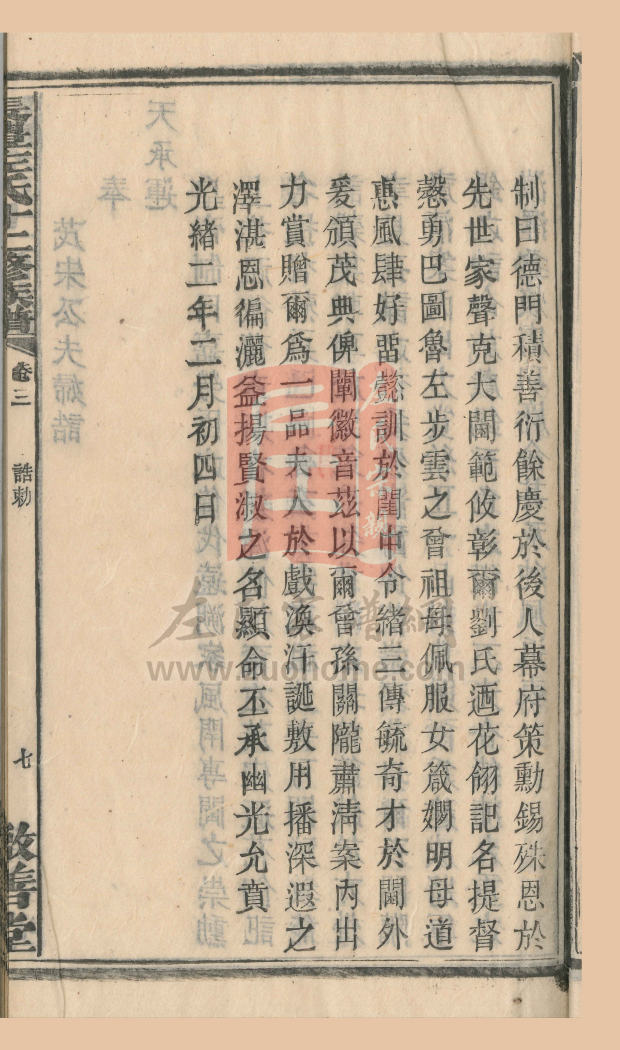 制曰德門積善衍餘慶於後人幕府策勳錫殊恩於
先世家聲克大閫範攸彰爾劉氏迺花翎記名提督
懃勇巴圖魯左步雲之曾祖母佩服女箴嫻明母道
惠風肆好畱懿訓於閨中令緒三傳毓奇才於閫外
爰頒茂典俾闡徽音茲以爾曾孫關隴肅清案內出
力賞贈爾爲一品夫人於戲渙汗誕敷用播深遐之
澤湛恩徧灑益揚賢淑之名顯命丕承幽光允賁
光緒二年二月初四日
左氏十二修族譜
卷三
誥勅
七
敦善堂
www.zuohome.com